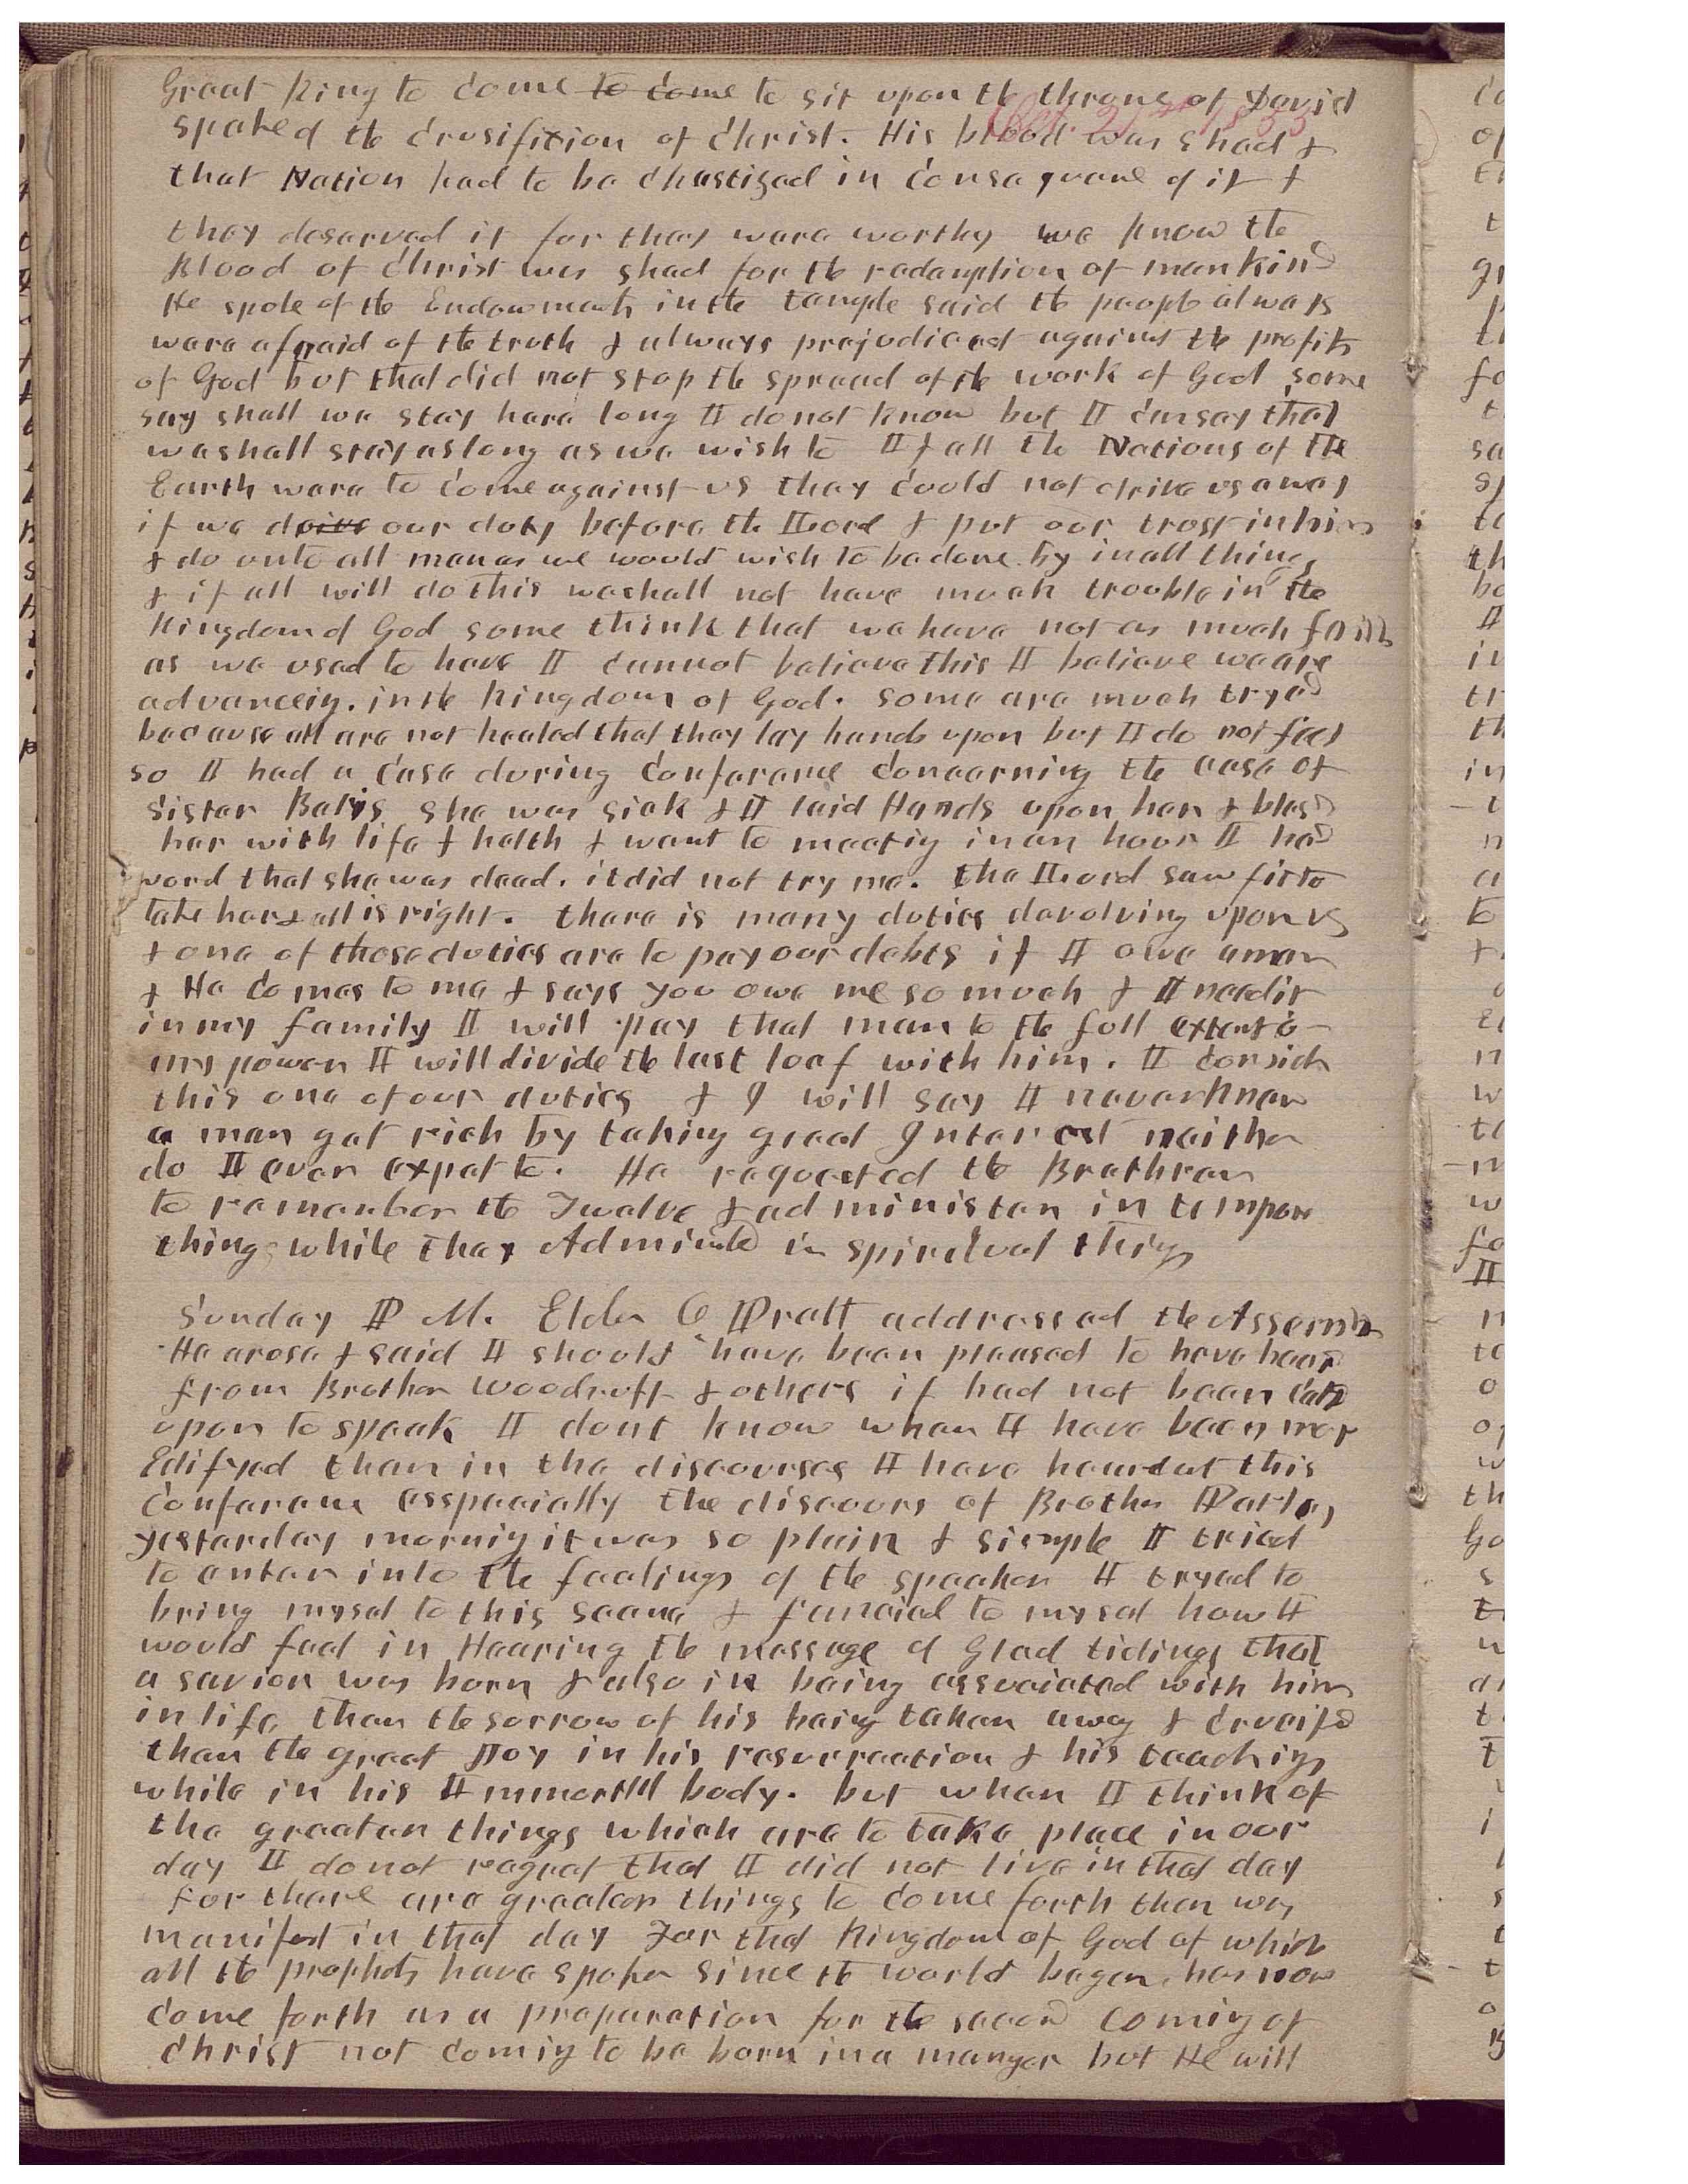 Great King to Come ~~to come~~ to sit upon the throne of David
Oct. 2nd 1853
spoke of the Crusifixion of Christ. His blood was shed &
that Nation had to be Chastised in Consequence of it &
they deserved it for they were worthy we know the
Blood of Christ was shed for the redemption of mankind
He spoke of the Endowments in the temple said the people always
were afraid of the truth & always prejudiced against the profits
of God but that did not stop the spread of the work of God some
say shall we stay here long I do not know but I can say that
we shall stay as long as we wish to If all the Nations of the
Earth were to Come against us they Could not drive us away
if we do~~ive~~ our duty before the Lord & put our trust in him
& do unto all men as we would wish to be done by in all things
& if all will do this we shall not have much trouble in the
Kingdom of God some think that we have not as much faith
as we used to have I Cannot believe this I believe we are
advanceing in the Kingdom of God. some are much tryed
because all are not healed that they lay hands upon but I do not feel
so I had a Case during Conference Concerning the case of
Sister he was sick & I laid Hands upon her & blesd
her with life & helth & went to meeting in an hour I had
word that she was dead. it did not try me. the Lord saw fit to
take her & all is right. there is many duties devolving upon us
& one of those duties are to pay our debts if I owe a man
& He Comes to me & says you owe me so much & I need it
in my family I will pay that man to the full extent of
my power I will divide the last loaf with him. I Consider
this one of our duties & I will say I never knew
a man get rich by taking great Interest neither
do I ever expect to. He requested the Brethren
to remember the Twelve & administer in temporal
things while they Administer in spiritual things
Sunday P M. Elder O Pratt addressed the Assembly
He arose & said I should have been pleased to have heard
from Brother Woodruff & others if had not been called
upon to speak I dont know when I have been more
Edifyed than in the discourses I have heard at this
Conference esspecially the discours of Brother Parley
yesterday morning it was so plain & simple I tried
to enter into the feelings of the speaker I tryed to
bring mysel to this scene & fancied to mysel how I
would feel in Hearing the message of Glad tidings that
a savior was born & also in being associated with him
in life then the sorrow of his being taken away & crucified
then the great Joy in his resurrection & his teachings
while in his Immortal body. but when I think of
the greater things which are to take place in our
day I do not regret that I did not live in that day
for there are greater things to Come forth then was
manifest in that day For that Kingdom of God of which
all the prophets have spoken since the world began has now
Come forth as a preparation for the second Coming of
Christ not Coming to be born in a manger but He will